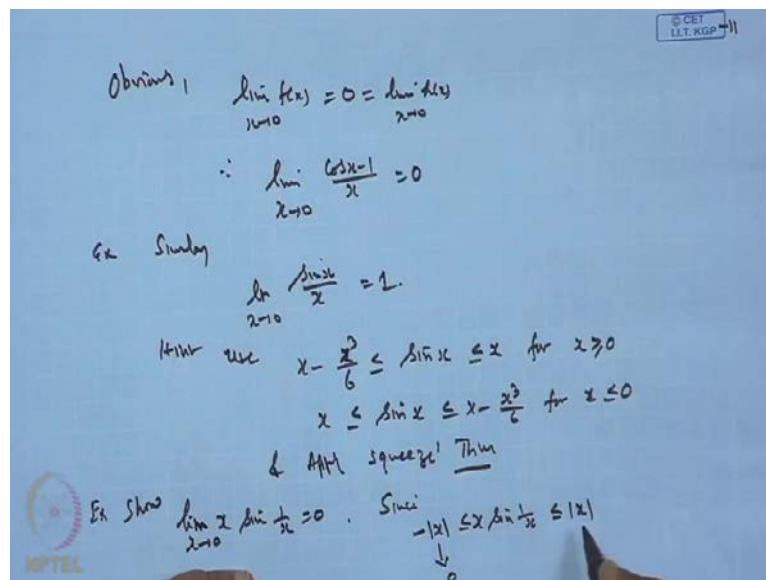 © CET
I.I.T. KGP -11
Obvious, lim f(x) = 0 = lim h(x)
x→0 x→0
∴ lim cosx-1/x = 0
x→0
Ex
lim sinx/x = 1.
x→0
Hint use x - x³/6 ≤ sin x ≤ x for x ≥ 0
x ≤ sin x ≤ x - x³/6 for x ≤ 0
& Appl squeeze' Thm
Ex Show lim x sin 1/x = 0. Sinci -|x| ≤ x sin 1/x ≤ |x|
x→0 ↓
0
NPTEL